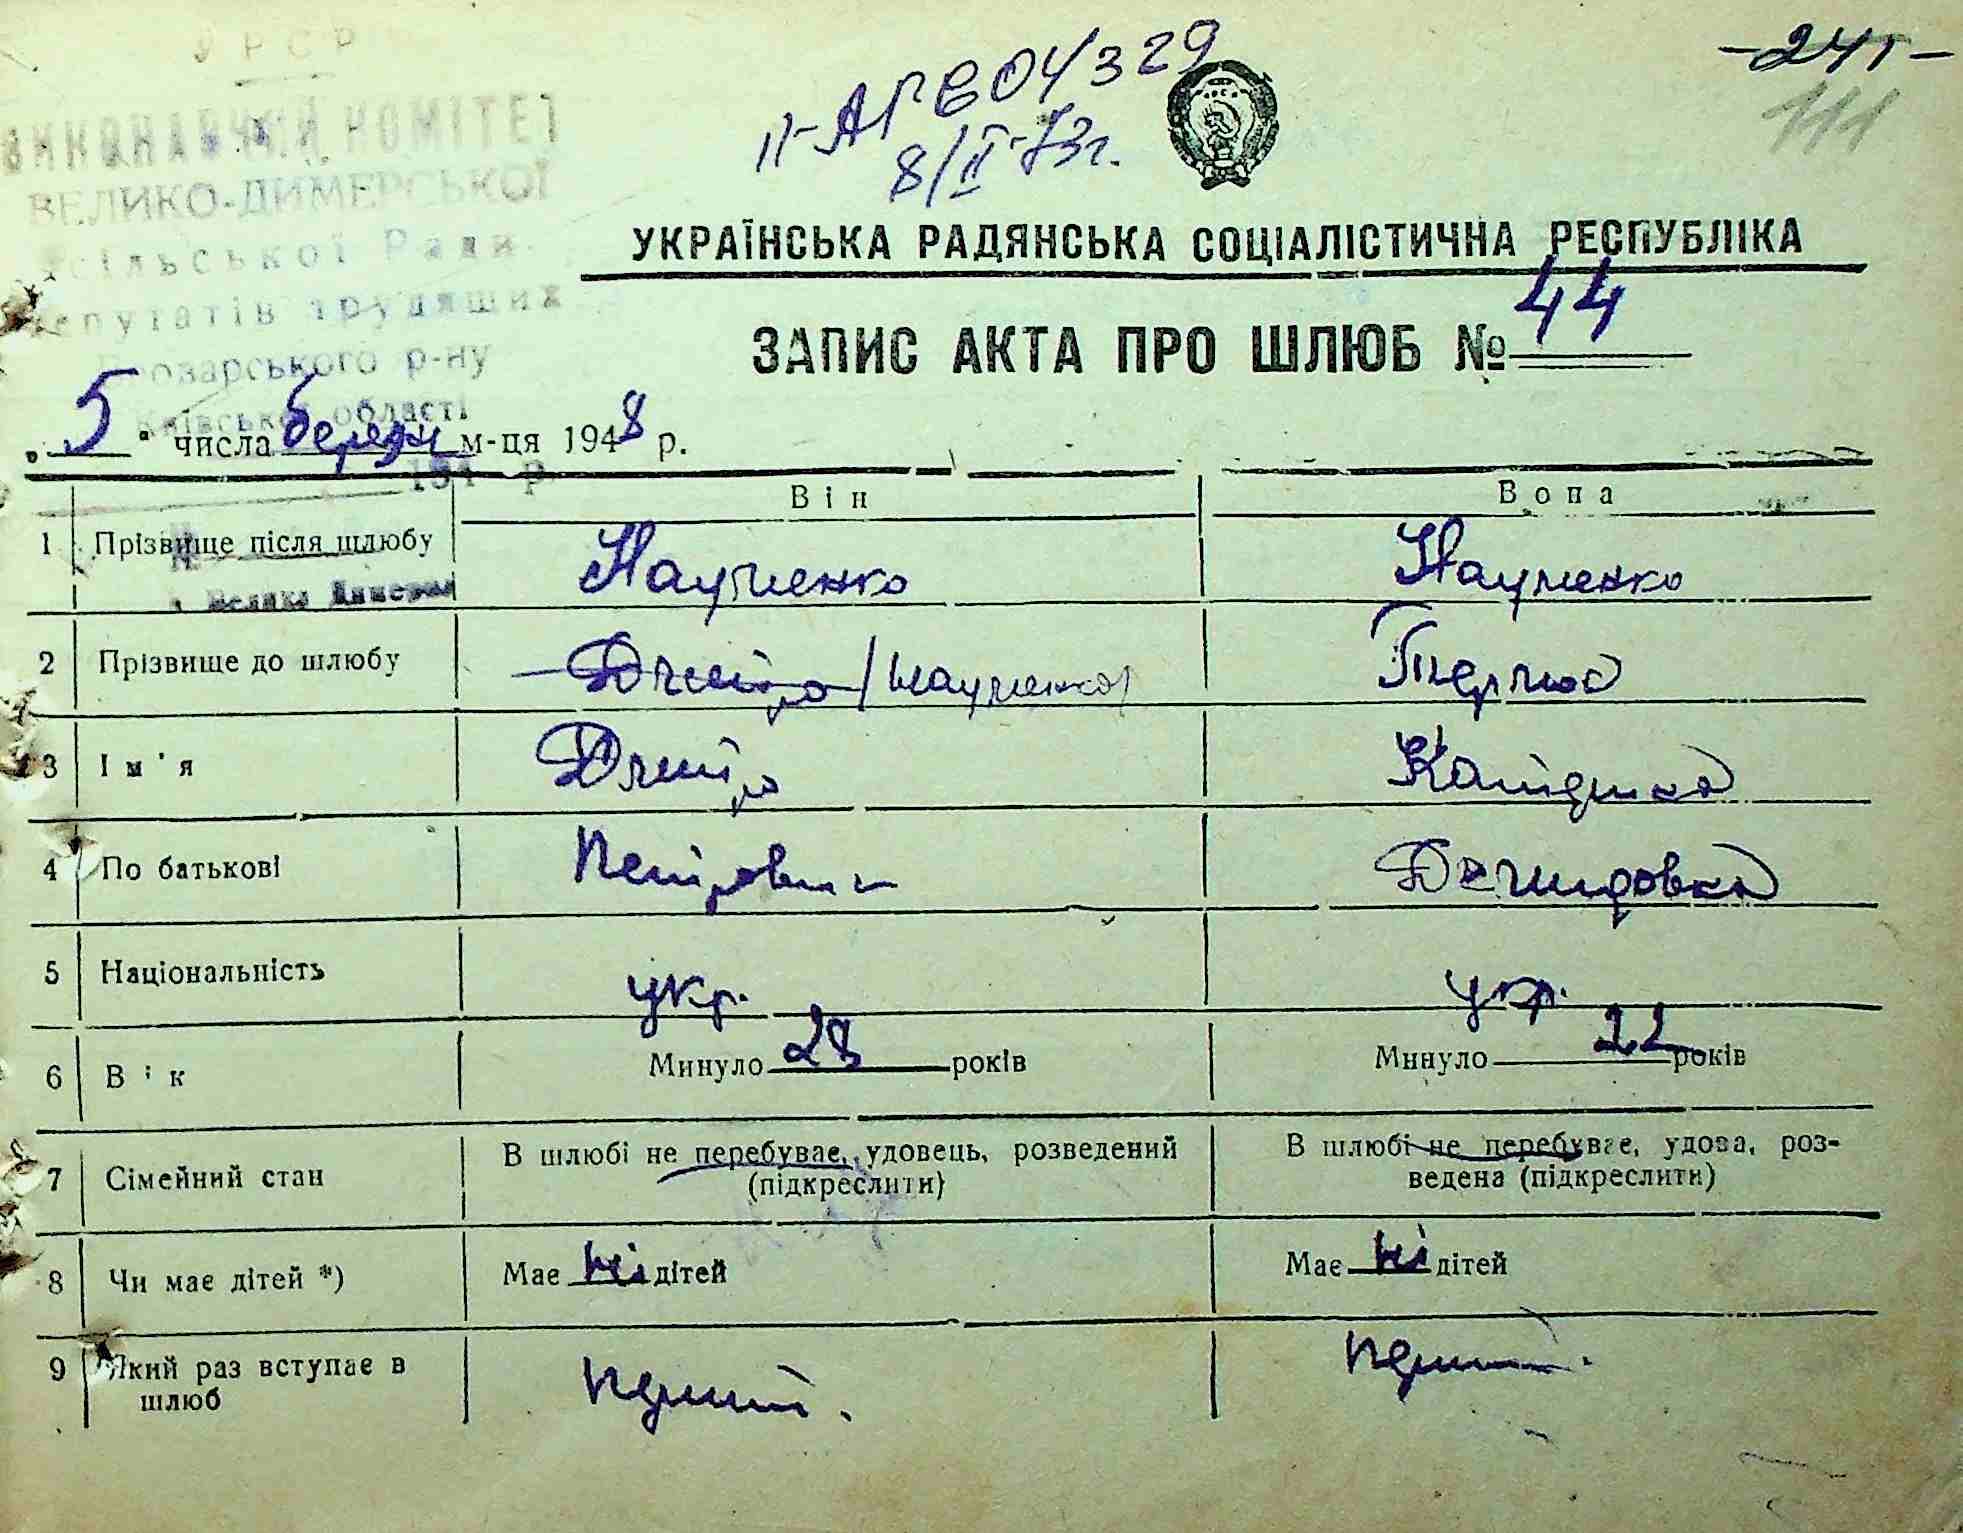 УРСР
ВИКОНАВЧИЙ КОМІТЕТ
ВЕЛИКО-ДИМЕРСЬКОЇ
сільської Ради
депутатів трудящих
Броварського р-ну
Київської області
194 р.
II-АГВ 04329
8/II-73г.
-241-
111
УКРАЇНСЬКА РАДЯНСЬКА СОЦІАЛІСТИЧНА РЕСПУБЛІКА
ЗАПИС АКТА ПРО ШЛЮБ № 44
„5“ числа березня м-ця 1948 р.
Він Вона
1 Прізвище після шлюбу Науменко Науменко
с. Велика Димерка
2 Прізвище до шлюбу Дмитро /Науменко/
3 Ім'я Дмитро
4 По батькові Петрович Демидовна
5 Національність укр. укр.
6 Вік Минуло 28 років Минуло 22 років
7 Сімейний стан В шлюбі не перебуває, удовець, розведений (підкреслити) В шлюбі не перебуває, удова, розведена (підкреслити)
8 Чи має дітей *) Має ні дітей Має ні дітей
9 Який раз вступає в шлюб перший. перший.